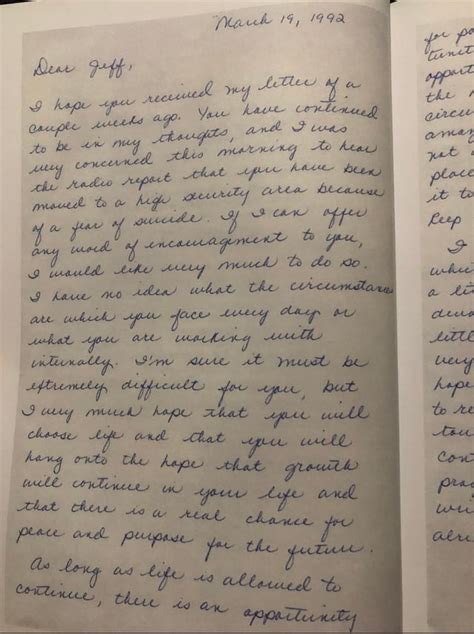 March 19, 1992
Dear Jeff,
I hope you received my letter of a
couple weeks ago. You have continued
to be in my thoughts, and I was
very concerned this morning to hear
the radio report that you have been
moved to a high security area because
of a fear of suicide. If I can offer
any word of encouragement to you,
I would like very much to do so.
I have no idea what the circumstances
are which you face every day or
what you are working with
internally. I'm sure it must be
extremely difficult for you, but
I very much hope that you will
choose life and that you will
hang onto the hope that growth
will continue in your life and
that there is a real chance for
peace and purpose for the future.
As long as life is allowed to
continue, there is an opportunity
for po
tunit
opport
the
circu
amaz
not
place
it to
keep
I
whic
a lit
devo
littl
very
hope
to re
tou
con
prac
wri
alre